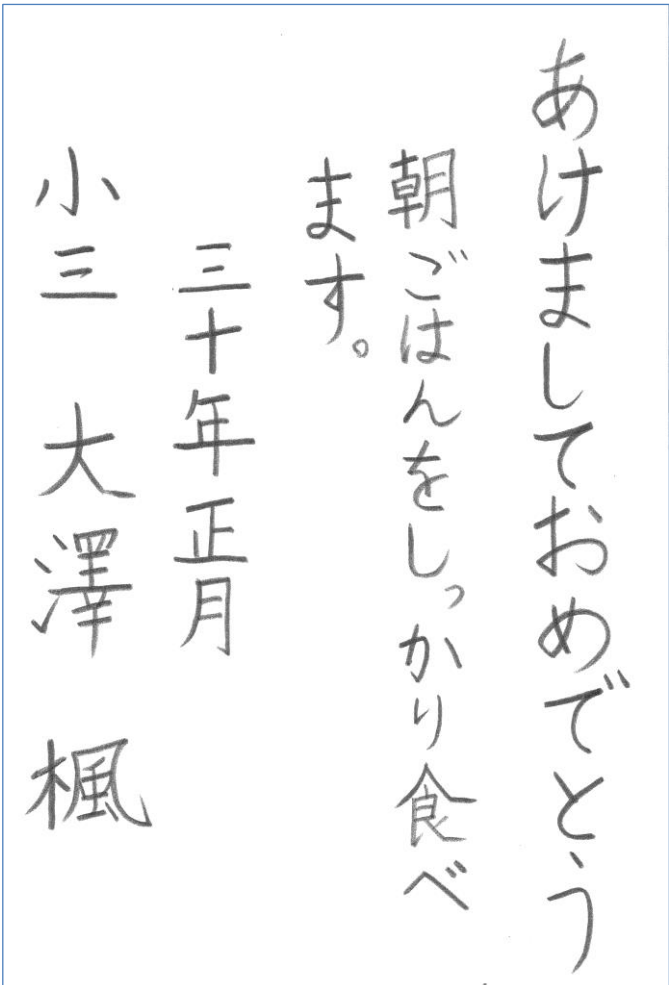 あけましておめでとう
朝ごはんをしっかり食べ
ます。
三十年正月
小三 大澤 楓